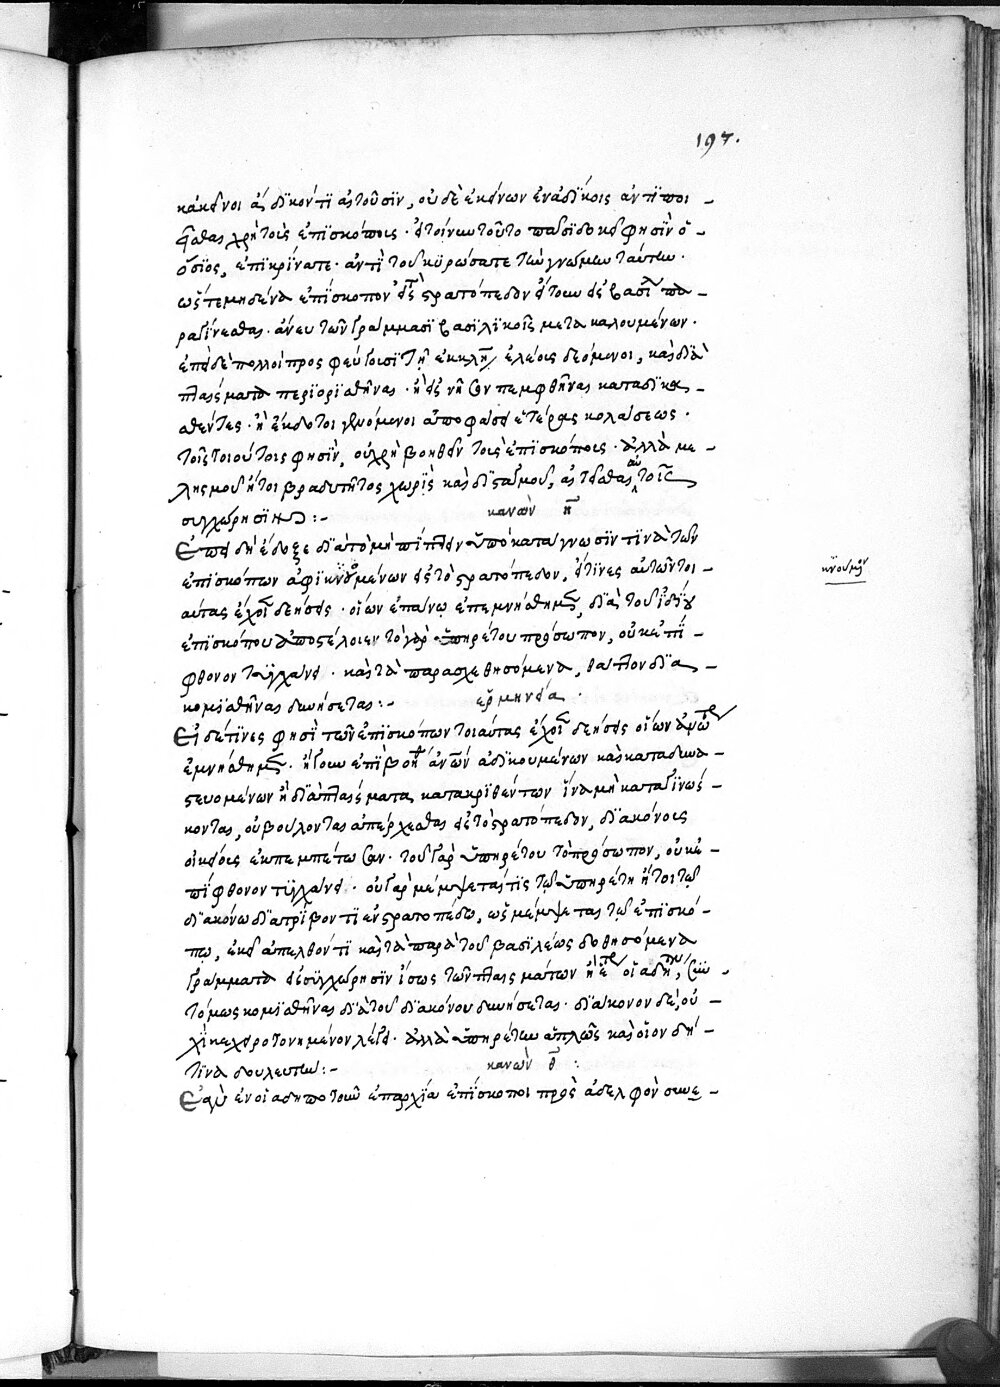 197.
κἀκεῖνοι ἀδίκοντι αἰτοῦσιν, οὐδὲ ἐκείνων ἐν ἀδίκοις ἀντιποι-
εῖσθαι χρὴ τοὺς ἐπισκόπους. εἰ τοίνυν τοῦτο πᾶσι δοκεῖ φησὶν ὁ
ὅσιος, ἐπικρίνατε. ἀντὶ τοῦ κυρώσατε τὴν γνώμην ταύτην.
ὥστε μηδένα ἐπίσκοπον εἰς στρατόπεδον ἤτουν εἰς βασιλέα πα-
ραγίνεσθαι. ἄνευ τῶν γράμμασι βασιλικοῖς μετακαλουμένων.
ἐπεὶ δὲ πολλοὶ προσφεύγουσι τῇ ἐκκλησίᾳ ἐλέους δεόμενοι, καὶ διὰ
πταίσματα περιορισθῆναι. ἢ εἰς νῆσον πεμφθῆναι καταδικα-
σθέντες. ἢ ἔκδοτοι γενόμενοι ἀποφάσει ἑτέρας κολάσεως.
τοῖς τοιούτοις φησὶν, οὐ χρὴ βοηθεῖν τοὺς ἐπισκόπους. ἀλλὰ με-
λησμοῦ ἤτοι βραδυτῆτος χωρὶς καὶ δισταγμοῦ, αἰτεῖσθαι αὐτοῖς
συγχώρησιν :-
κανὼν η
Ἐπειδὴ ἔδοξε διὰ τὸ μὴ πίπτειν ὑπὸ κατάγνωσιν τινὰ τῶν
ἐπισκόπων ἀφικνουμένων εἰς τὸ στρατόπεδον, εἴ τινες αὐτῶν τοι-
κνουμένων
αύτας ἔχοιεν δεήσεις. οἵων ἐπάνω ἐπεμνήσθημεν, διὰ τοῦ ἰδίου
ἐπισκόπου ἀποστέλοιεν τὸ γὰρ ὑπηρέτου πρόσωπον, οὐκ ἐπί-
φθονον τυγχάνει. καὶ τὰ παρασχεθησόμενα, θᾶττον δια-
κομισθῆναι δυνήσεται :-
ἑρμηνεία.
Εἰ δέ τινες φησὶ τῶν ἐπισκόπων τοιαύτας ἔχοιεν δεήσεις οἵων ἀνωτέρω
ἐμνήσθημεν. ἤγουν ἐπὶ βοηθείᾳ ἀνθρώπων ἀδικουμένων καὶ καταδυνα-
στευομένων ἢ διὰ πταίσματα κατακριθέντων ἵνα μὴ καταγινώσ-
κονται, οὐ βούλονται ἀπέρχεσθαι εἰς τὸ στρατόπεδον, διακόνους
οἰκείους ἐκπεμπέτωσαν. τοῦ γὰρ ὑπηρέτου τὸ πρόσωπον, οὐκ ἐ-
πίφθονον τυγχάνει. οὐ γὰρ μέμψεταί τις τῷ ὑπηρέτῃ ἤτοι τῷ
διακόνῳ διατρίβοντι ἐν στρατοπέδῳ, ὡς μέμψεται τῷ ἐπισκό-
πῳ, ἐκεῖ ἀπελθόντι καὶ τὰ παρὰ τοῦ βασιλέως δοθησόμενα
γράμματα εἰς συγχώρησιν ἴσως τῶν πταισμάτων ἢ ἕτερον οἱαδήποτε, συν-
τόμως κομισθῆναι διὰ τοῦ διακόνου δυνήσεται. διάκονον δὲ, οὐ-
χὶ κεχειροτονημένον λέγει. ἀλλὰ ὑπηρέτην ἁπλῶς καὶ οἷον δή-
τινα δουλευτὴν :-
κανὼν θ :
Ἐὰν ἐν οἱαδήποτουν ἐπαρχίᾳ ἐπίσκοποι πρὸς ἀδελφὸν συνε-